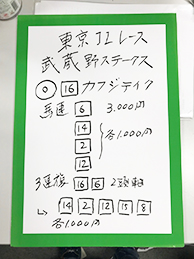 東京12レース
武蔵野ステークス
◎ 16 カフジテイク
馬連 6 3,000円
14
2
12
各1,000円
3連複 16 6 2頭軸
↳ 14 2 12 15 8
各1,000円